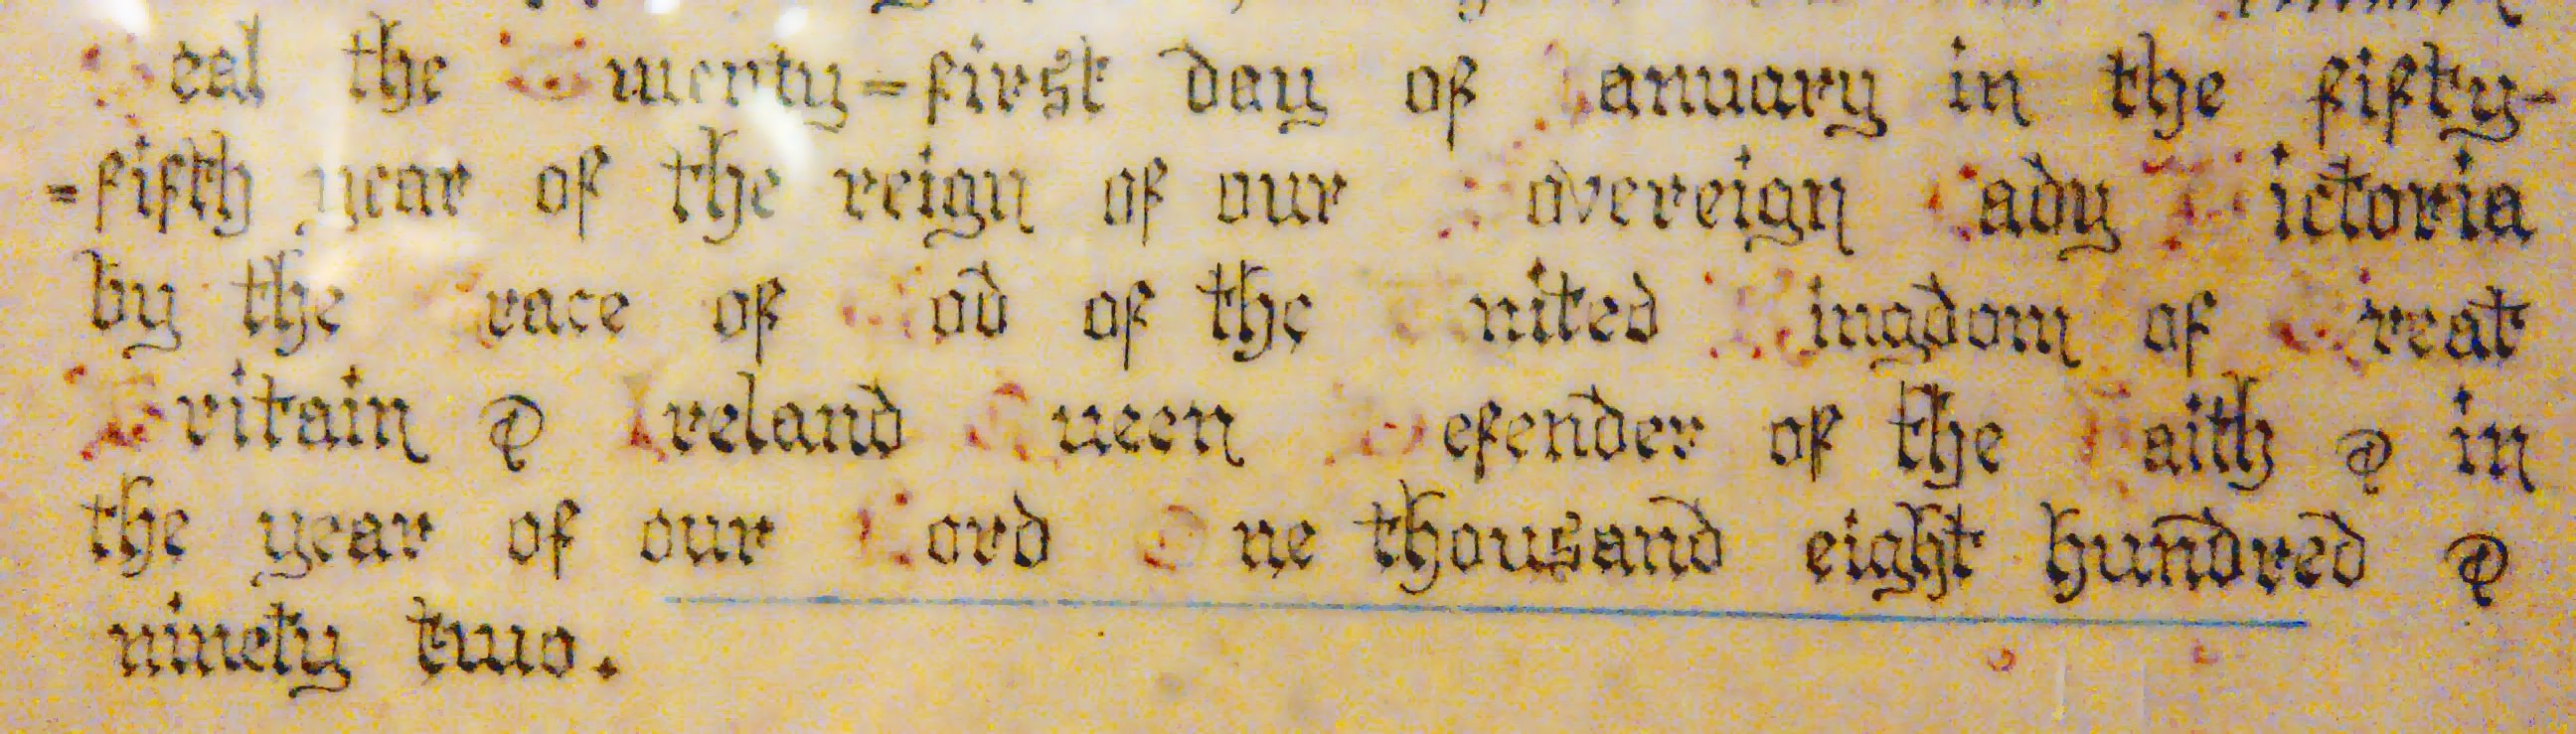 Seal the Twenty=first day of January in the fifty-
=fifth year of the reign of our Sovereign Lady Victoria
by the Grace of God of the United Kingdom of Great
Britain & Ireland Queen Defender of the Faith & in
the year of our Lord One thousand eight hundred &
ninety two.